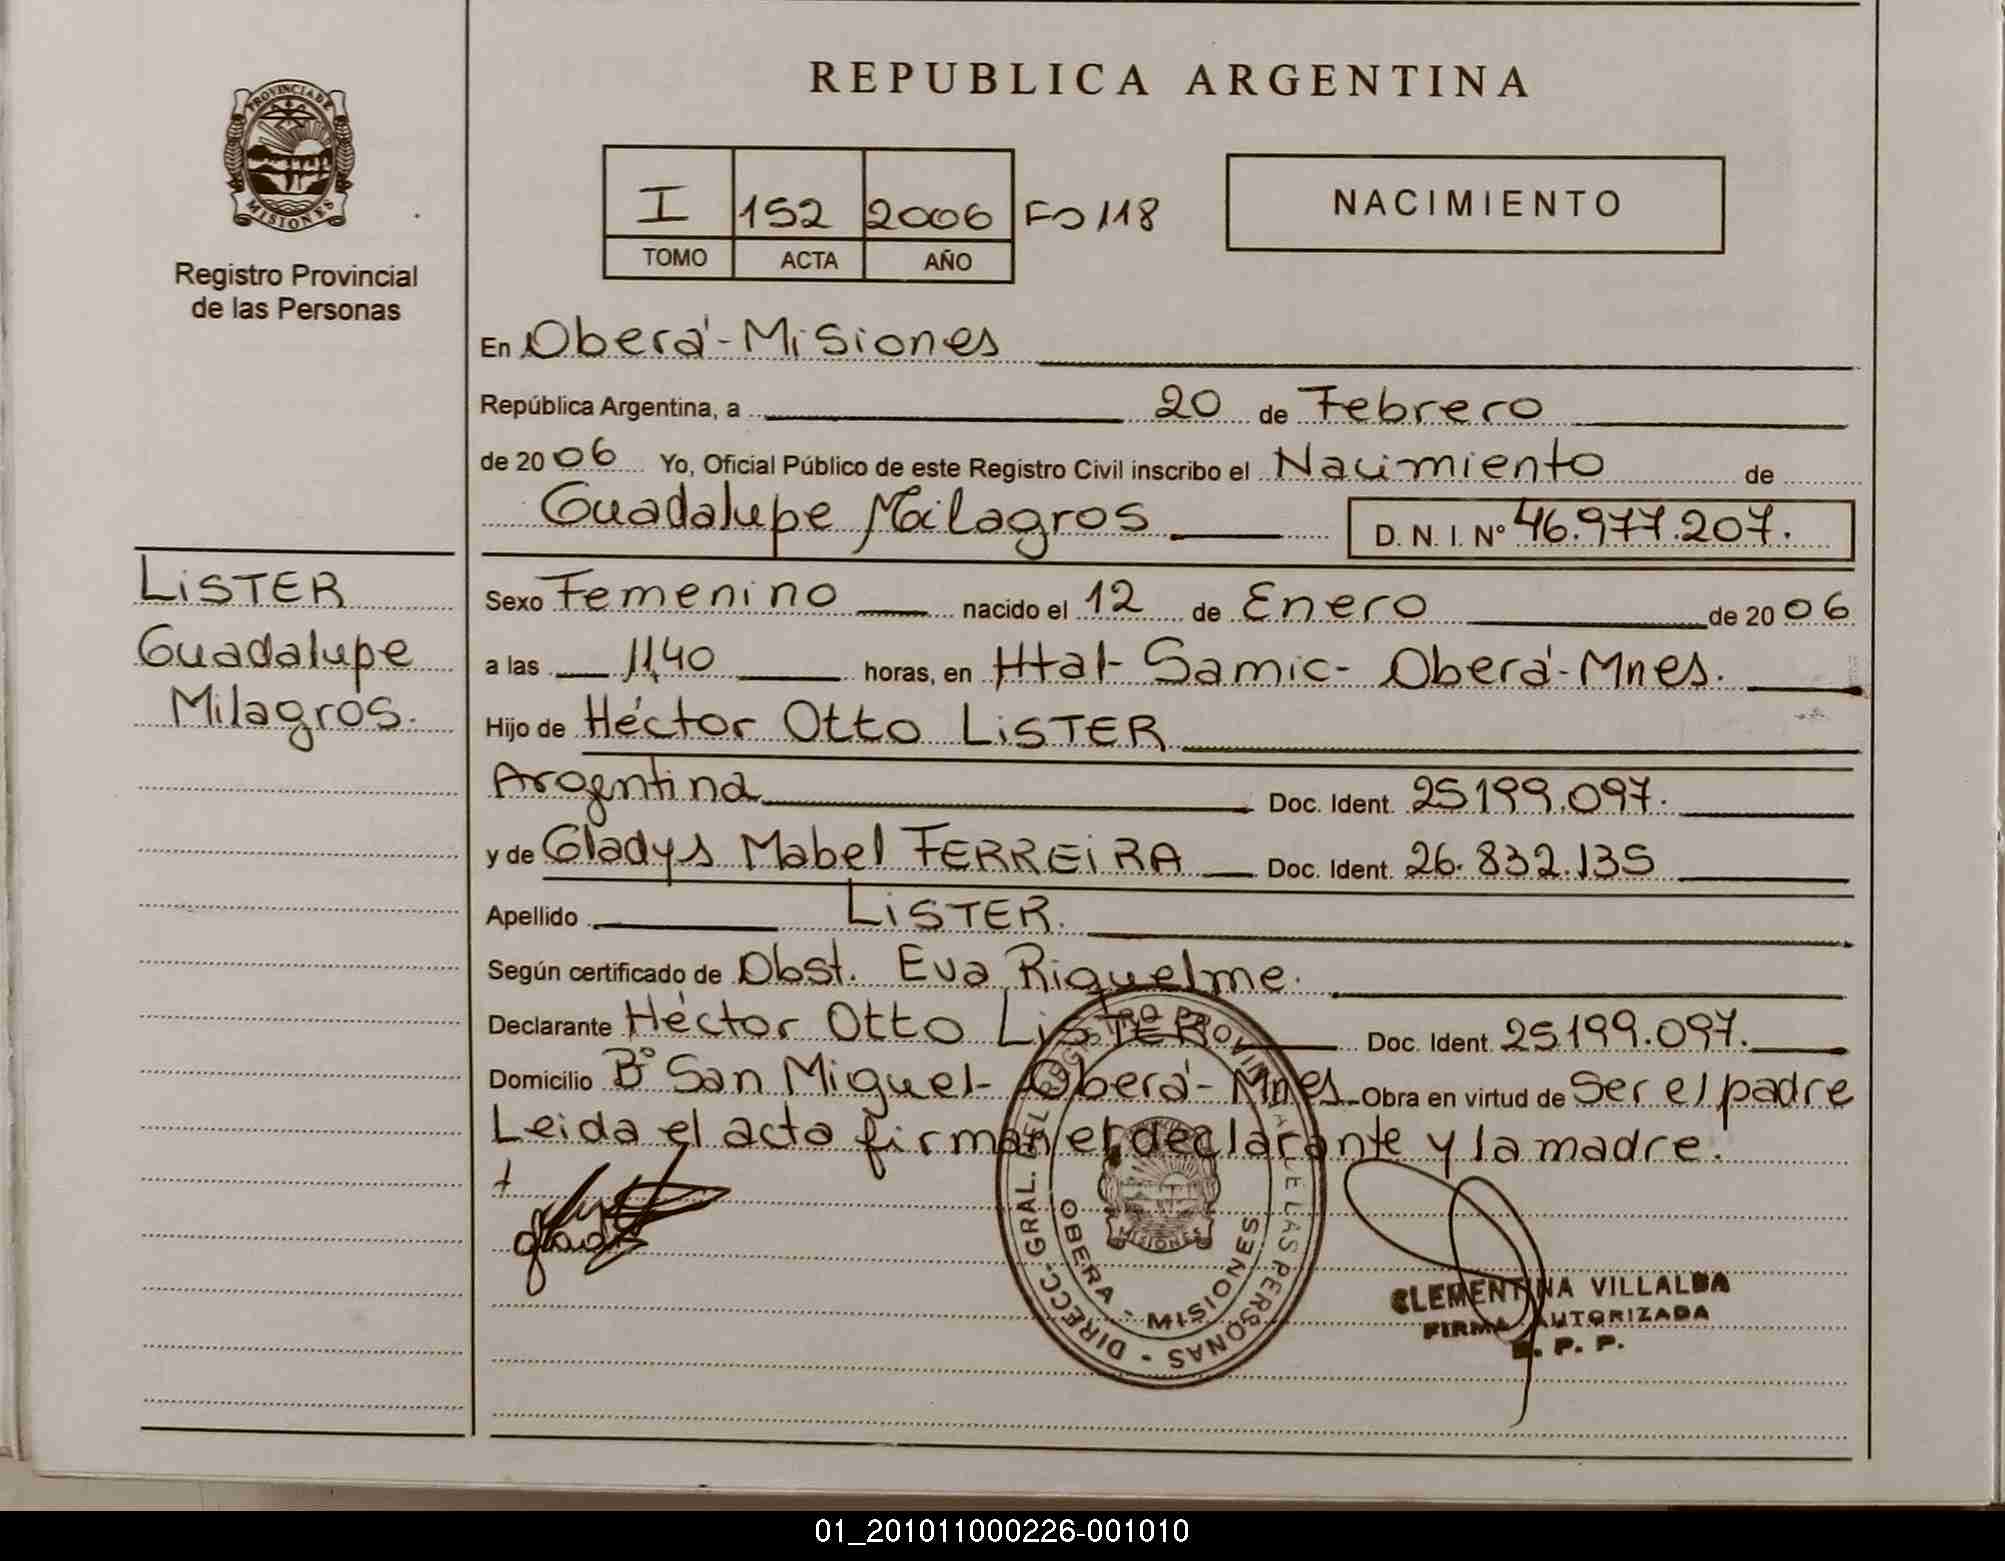 REPUBLICA ARGENTINA
PROVINCIA DE
MISIONES
Registro Provincial
de las Personas
I 152 2006 Fo 118
TOMO ACTA AÑO
NACIMIENTO
En Oberá-Misiones
República Argentina, a 20 de Febrero
de 2006 Yo, Oficial Público de este Registro Civil inscribo el Nacimiento de
Guadalupe Milagros D. N. I. Nº 46.977.207.
LiSTER
Guadalupe
Milagros.
Sexo Femenino nacido el 12 de Enero de 2006
a las 11,40 horas, en Htal- Samic- Oberá-Mnes.
Hijo de Héctor Otto LiSTER
Argentina Doc. Ident. 25199.097.
y de Gladys Mabel FERREiRA Doc. Ident. 26.832.135
Apellido LiSTER.
Según certificado de Obst. Eva Riquelme.
Declarante Héctor Otto LiSTER Doc. Ident. 25199.097.
Domicilio Bº San Miguel- Oberá- Mnes. Obra en virtud de Ser el padre
Leida el acta firman el declarante y la madre.
DIRECC. GRAL. DEL REGISTRO PROVINCIAL DE LAS PERSONAS
OBERA - MISIONES
MISIONES
CLEMENTINA VILLALBA
FIRMA AUTORIZADA
R. P. P.
01_201011000226-001010